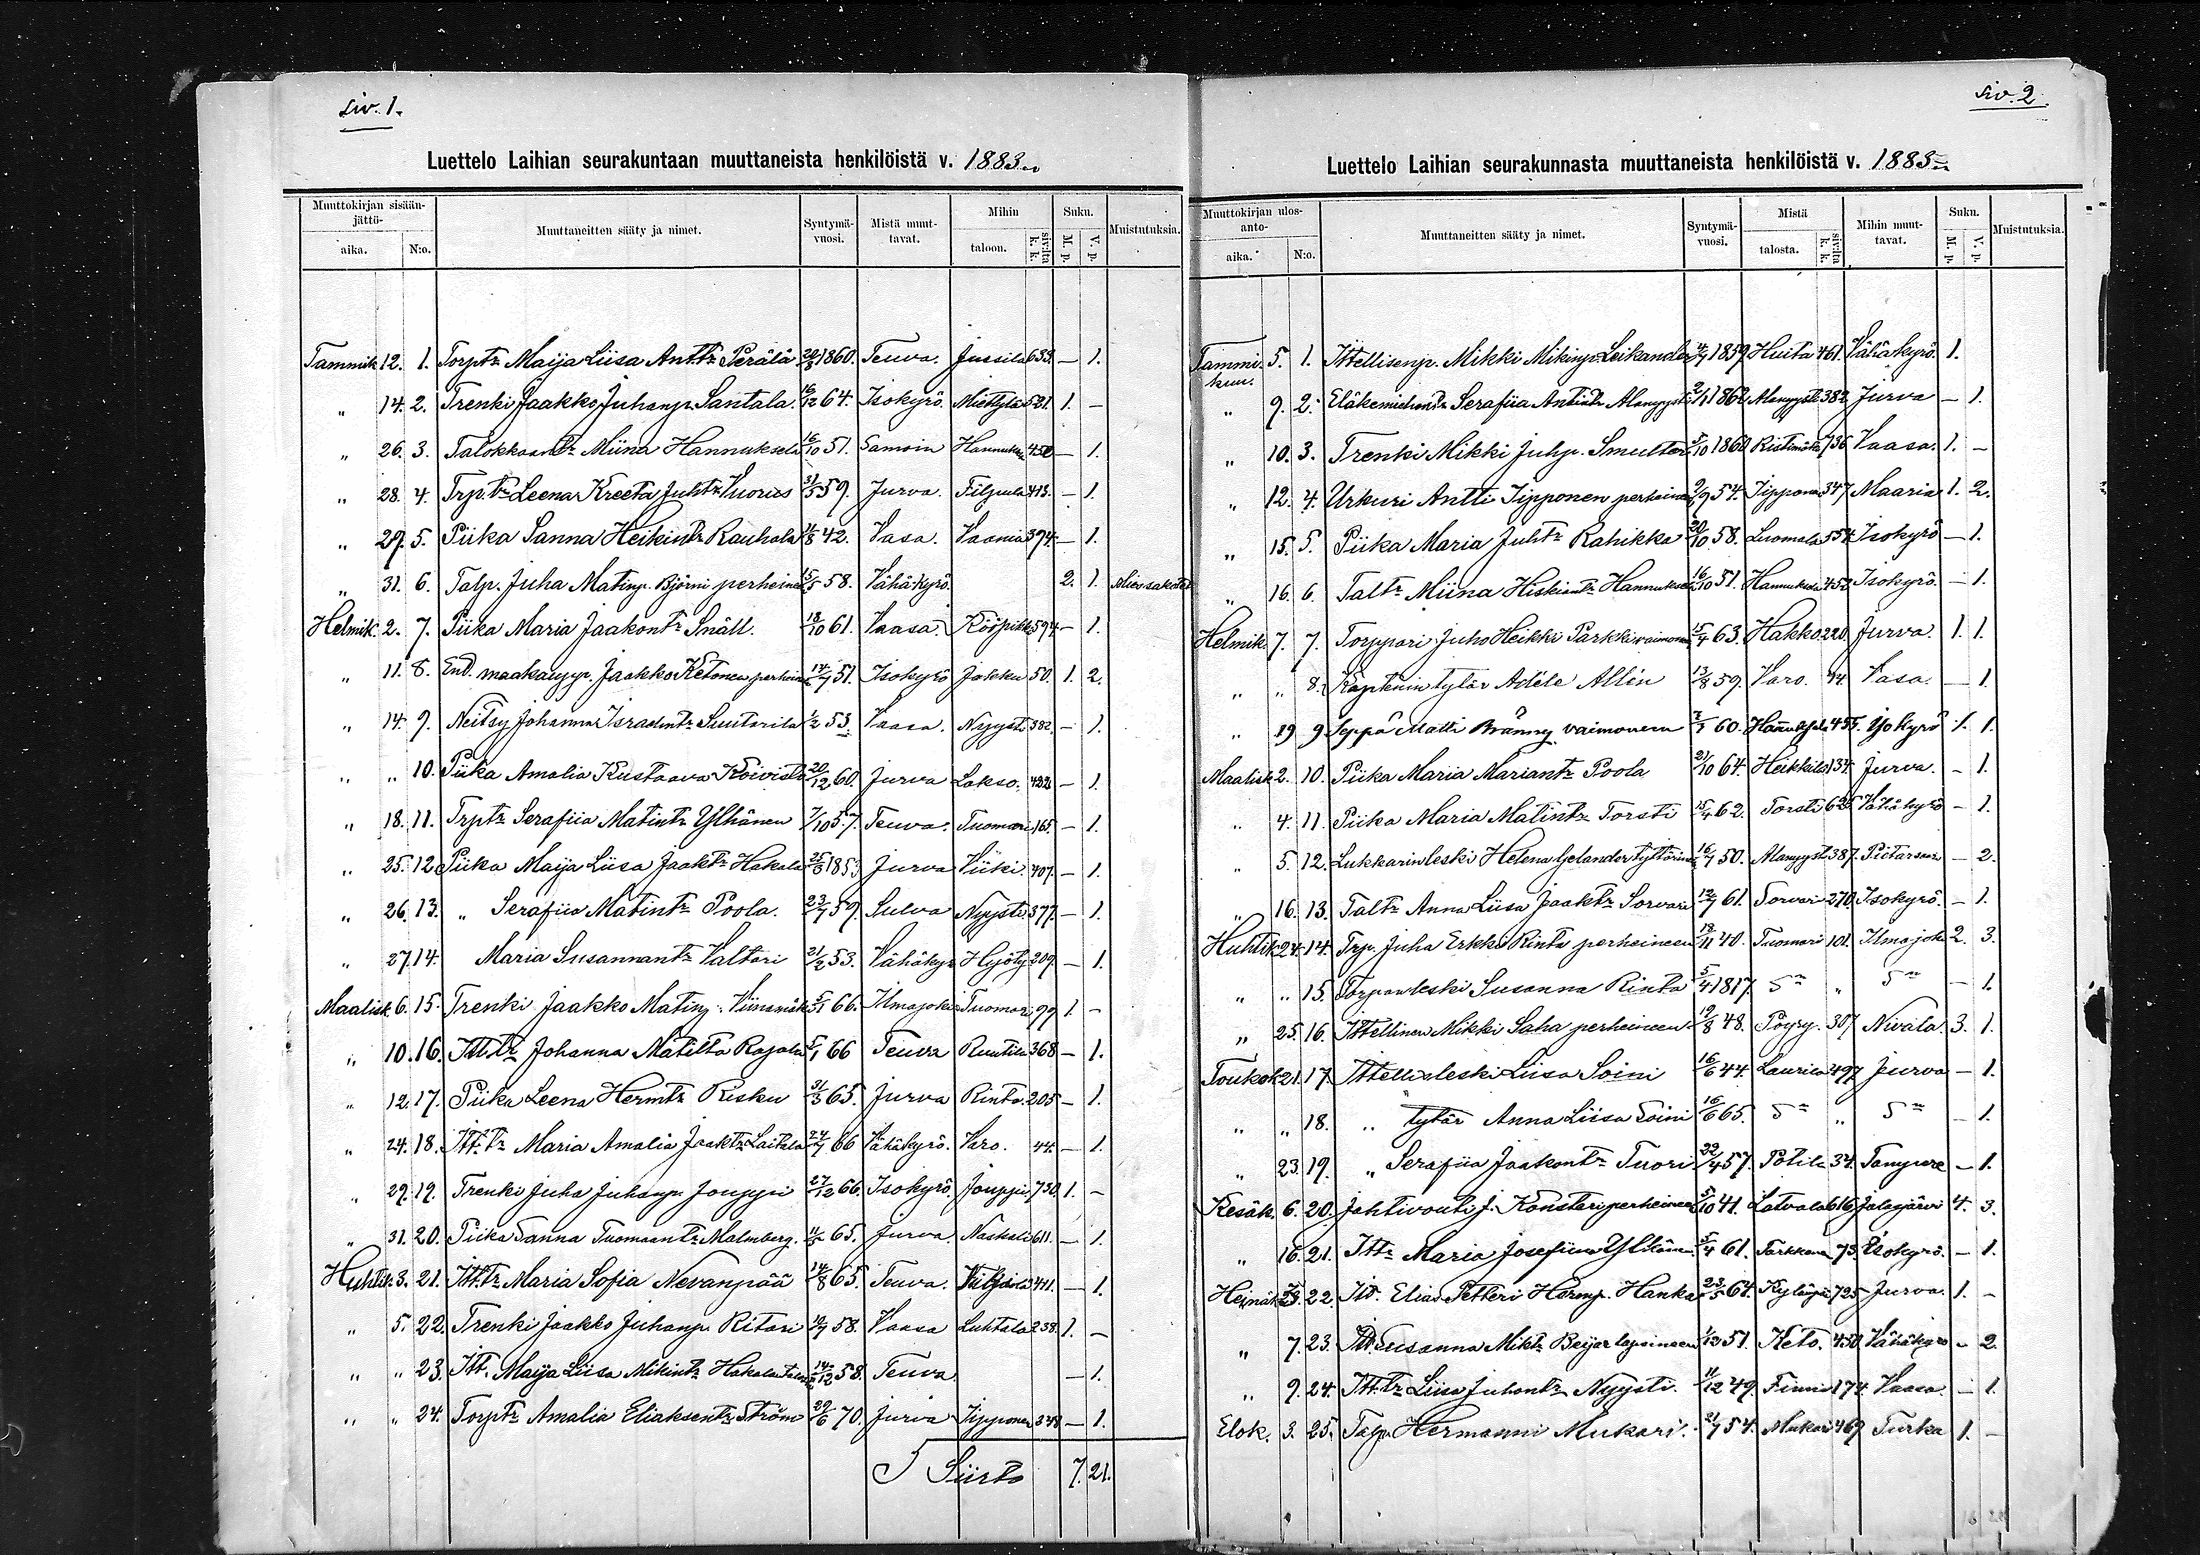 siv. 1.
Luettelo Laihian seurakuntaan muuttaneista henkilöistä v. 1883.
Muuttokirjan sisään-jättö- aika. N:o. Muuttaneitten sääty ja nimet. Syntymä-vuosi. Mistä muut-tavat. Mihin taloon. siv:lta k. k. Suku. M. p. V. p. Muistutuksia.
Tammik. 12. 1. Torptr Maija Liisa Anttr Perälä 20/8 1860. Teuva. Jussila 653. — 1.
" 14. 2. Trenki Jaakko Juhanp. Santala. 16/12 64. Isokyrö. Miettylä 521. 1. —
" 26. 3. Talokkaantr Miina Hannuksela 16/10 51. Samoin Hannuksela 450 — 1.
" 28. 4. Trp. tr Leena Kreeta Juhtr Vuorios 31/5 59. Jurva. Filppula 413. — 1.
" 29. 5. Piika Sanna Heikintr Rauhala 11/8 42. Vasa. Vaania 394. — 1.
" 31. 6. Talp. Juha Matinp. Björni perheineen 15/5 58. Vähäkyrö. 2. 1.
Helmik. 2. 7. Piika Maria Jaakontr Snäll. 18/10 61. Vaasa. Kööpikk 594. — 1.
" 11. 8. End. maakaupp. Jaakko Ketonen perhein 14/7 51. Isokyrö Jakku 50. 1. 2.
" 14. 9. Neitsy Johanna Israelintr Suutarila 1/2 53. Vaasa. Nyysti 382. — 1.
" " 10. Piika Amalia Kustaava Koivisto 20/12 60. Jurva Lakso. 422 — 1.
" 18. 11. Trptr Serafiia Matintr Ylhänen 7/10 57. Teuva. Tuomari 165. — 1.
" 25. 12 Piika Maija Liisa Jaaktr Hakala 25/8 1853 Jurva Viiki. 407. — 1.
" 26. 13. " Serafiia Matintr Poola. 23/7 59. Sulva Nyysti 377. — 1.
" 27. 14. Maria Susannantr Valtari 21/2 53. Vähäkyr Hyöty 209. — 1.
Maalisk. 6. 15. Trenki Jaakko Matinp. Viinamäki 5/1 66. Ilmajoki Tuomari 99 1. —
" 10. 16. Itt. tr Johanna Matilta Rajala 5/1 66 Teuva Ruutila 368 — 1.
" 12. 17. Piika Leena Hermtr Risku 31/3 65. Jurva Rinta. 205 — 1.
" 24. 18. Itt. tr Maria Amalia Jaaktr Laitala 24/7 66 Vähäkyrö. Varo. 44. — 1.
" 29. 19. Trenki Juha Juhanp. Jouppi 27/12 66. Isokyrö. Jouppi 730. 1. —
" 31. 20. Piika Sanna Tuomaantr Malmberg. 11/5 65. Jurva. Naskali 611. — 1.
Huhtik. 3. 21. Itt. tr Maria Sofia Nevanpää 14/8 65. Teuva. 411. — 1.
" 5. 22. Trenki Jaakko Juhanp. Ritari 10/7 58. Vaasa Luhtala 238. 1. —
" " 23. Itt. Maija Liisa Mikintr Hakalantaus 14/12 58. Teuva. — 1.
" " 24. Torptr Amalia Eliaksentr Ström 29/6 70. Jurva Jipponen 348 — 1.
Siirto 7. 21.
siv. 2.
Luettelo Laihian seurakunnasta muuttaneista henkilöistä v. 1883.
Muuttokirjan ulos-anto- aika. N:o. Muuttaneitten sääty ja nimet. Syntymä-vuosi. Mistä talosta. siv:lta k. k. Mihin muut-tavat. Suku. M. p. V. p. Muistutuksia.
Tammi-kuu. 5. 1. Ittellisenp. Mikki Mikinp. Leikander 4/9 1859 Huita 461. Vähäkyrö. 1.
" 9. 2. Eläkemiehentr Serafiia Antintr Alanyysti 2/11 1862 Alanyysti 382. Jurva — 1.
" 10. 3. Trenki Mikki Juhp. Smulter 5/10 1860 Ristimäki 736 Vaasa. 1. —
" 12. 4. Urkuri Antti Jipponen perheineen 2/9 54. Jipponen 347 Maaria 1. 2.
" 15. 5. Piika Maria Juhtr Rahikka 20/10 58. Luomala 554. Isokyrö — 1.
" 16. 6. Taltr Miina Hiskiantr Hannuksela 16/10 51. Hannuksela 452 Isokyrö. — 1.
Helmik. 7. 7. Torppari Juho Heikki Parkki vaimoneen 15/4 63. Hakko 220. Jurva. 1. 1.
" " 8. Kapteenin tytär Adéle Allén 13/8 59. Varo. 44. Vasa. — 1.
" 19 9 Seppä Matti Bränny vaimoneen 7/1 60. Hannuksela 455. Isokyrö 1. 1.
Maalisk. 2. 10. Piika Maria Mariantr Poola 21/10 64. Heikkilä 134. Jurva. — 1.
" 4. 11. Piika Maria Matintr Torsti 15/4 62. Torsti 625 Vähäkyrö — 1.
" 5. 12. Lukkarinleski Helena Gelander tyttärineen 16/7 50. Alanyysti 387. Pietarsaar — 2.
" 16. 13. Taltr Anna Liisa Jaaktr Sorvari 12/7 61. Sorvari 270. Isokyrö. — 1.
Huhtik. 24. 14. Trp. Juha Erkki Rinta perheineen 18/11 40. Tuomari 101. Ilmajoki 2. 3.
" " 15. Torparinleski Susanna Rinta 5/4 1817. Sm " Sm — 1.
" 25. 16. Ittellinen Mikki Saha perheineen 19/8 48. Pöyry. 307 Nivala. 3. 1.
Toukok. 21. 17. Ittellisleski Liisa Soini 16/6 44. Laurila 497 Jurva — 1.
" " 18. " tytär Anna Liisa Soini 16/6 65. Sm " Sm — 1.
" 23. 19. " Serafiia Jaakontr Tuori 22/4 57. Potila 34. Tampere — 1.
Kesäk. 6. 20. Jahtivouti J. Konstari perheineen 5/10 41. Latvala 616 Jalasjärvi 4. 3.
" 16. 21. Ittr Maria Josefiina Ylhäinen 5/4 61. Tarkkanen 73. Isokyrö. — 1.
Heinäk. 3. 22. Itt. Elias Petteri Hermp. Hanka 23/5 64. Kylänpää 725 Jurva. 1. —
" 7. 23. Itt. Susanna Miktr Beijar lapsineen 1/12 51. Keto. 450 Vähäkyrö — 2.
" 9. 24. Itt. tr Liisa Juhontr Nyysti. 11/12 49. Finni 174. Vaasa. — 1.
Elok. 3. 25. Talp. Hermanni Mukari. 21/7 54. Mukari 469 Turku 1. —